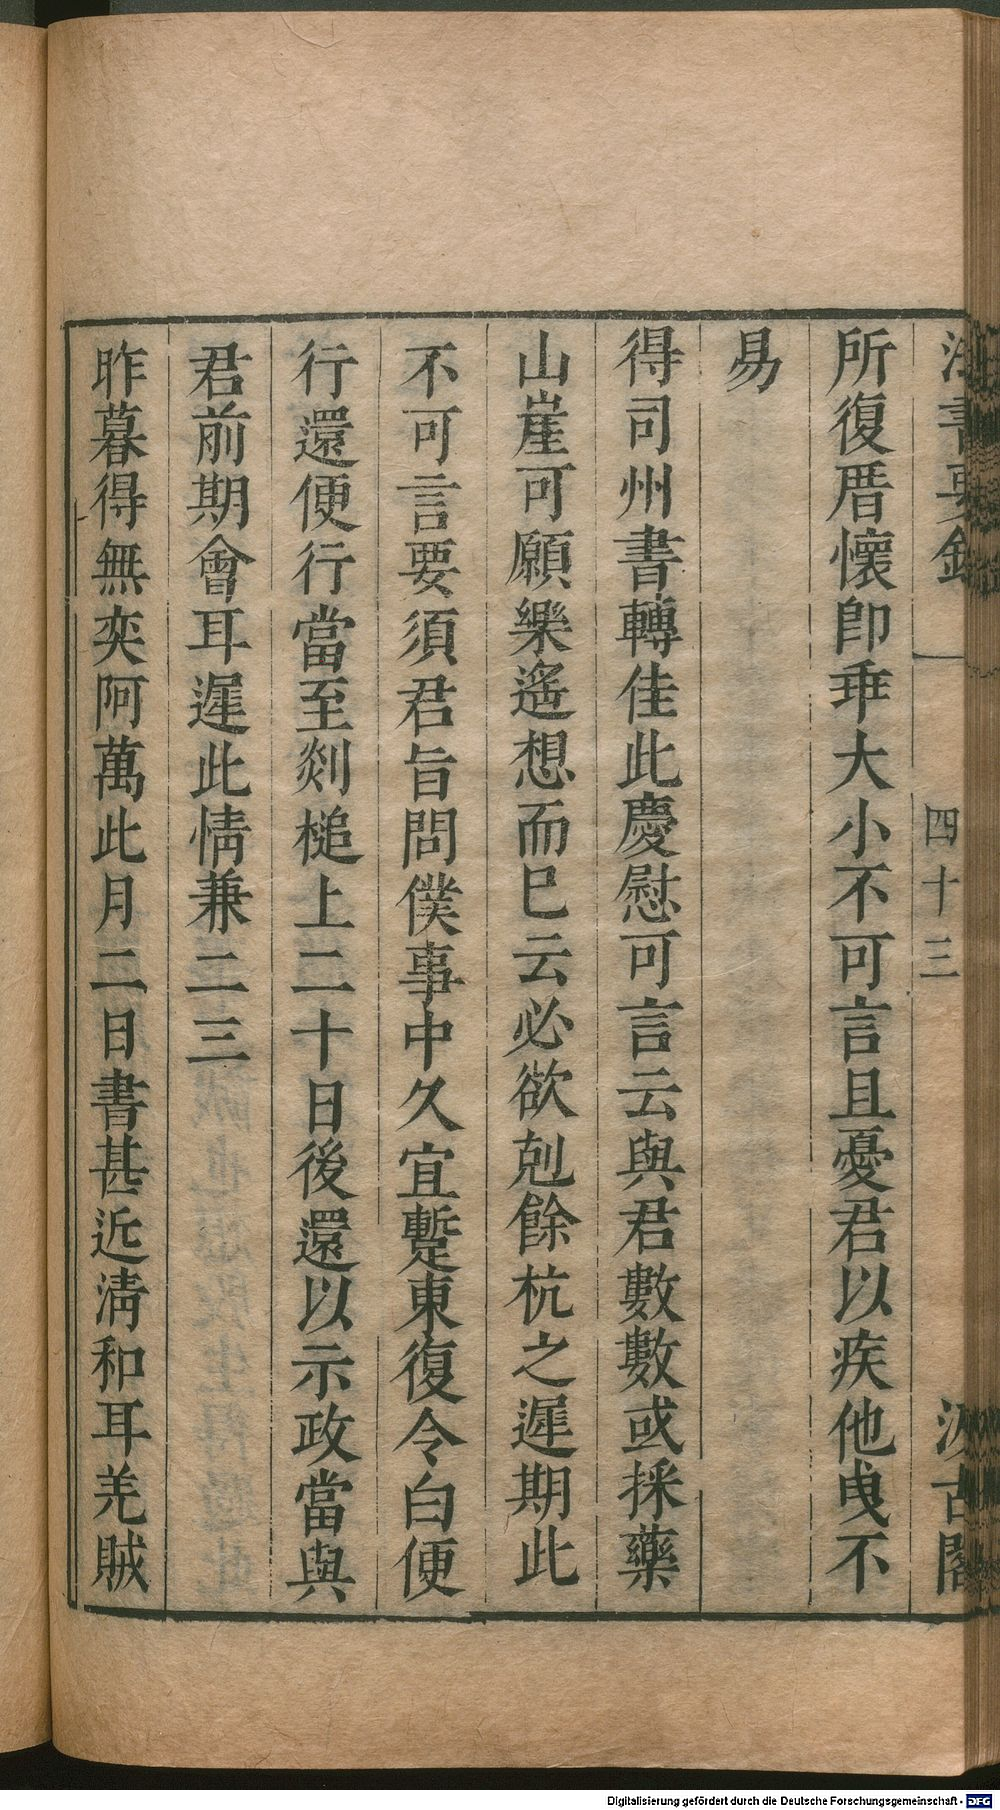 法書要錄
四十三
汲古閣
所復厝懷卽乖大小不可言且憂君以疾他曳不
易
得司州書轉佳此慶慰可言云與君數數或採藥
山崖可願樂遙想而巳云必欲剋餘杭之遲期此
不可言要須君旨問僕事中久宜蹔東復令白便
行還便行當至剡槌上二十日後還以示政當與
君前期會耳遲此情兼二三
昨暮得無奕阿萬此月二日書甚近淸和耳羌賊
Digitalisierung gefördert durch die Deutsche Forschungsgemeinschaft - DFG